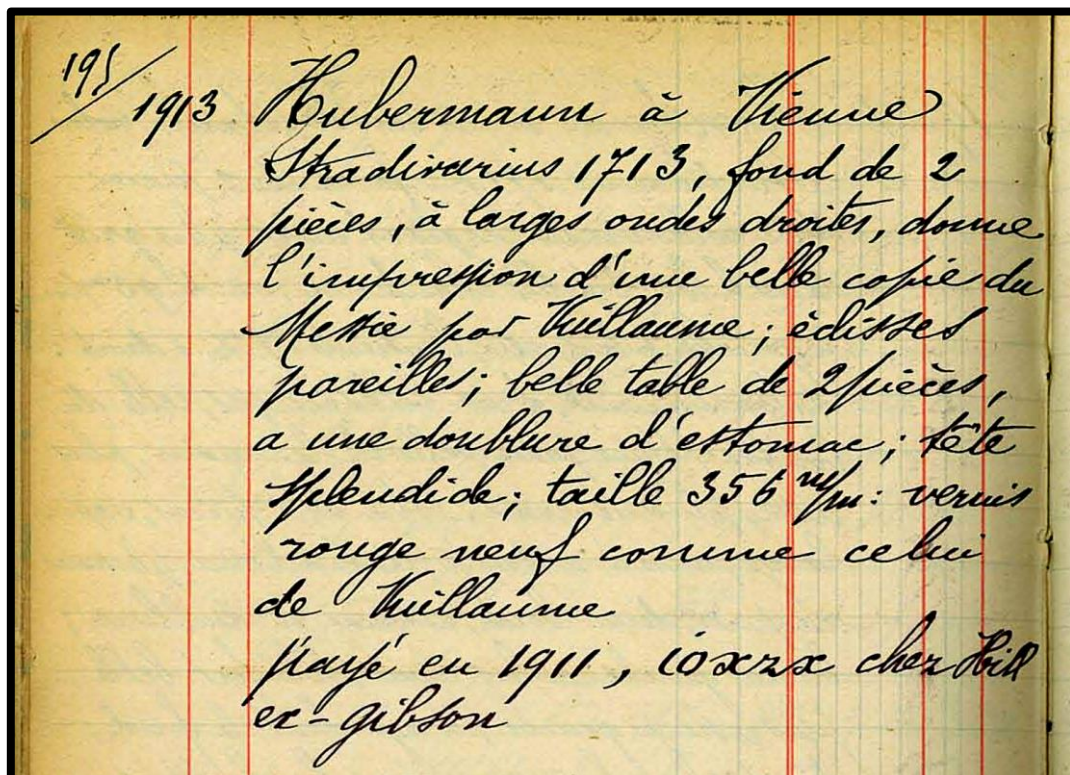 195/
1913 Hubermann à Vienne
Stradivarius 1713, fond de 2
pièces, à larges ondes droites, donne
l'impression d'une belle copie du
Messie par Vuillaume; éclisses
pareilles; belle table de 2 pièces,
a une doublure d'estomac; tête
splendide; taille 356 m/m: vernis
rouge neuf comme celui
de Vuillaume
payé en 1911, ioxzx chez Hill
ex-gibson